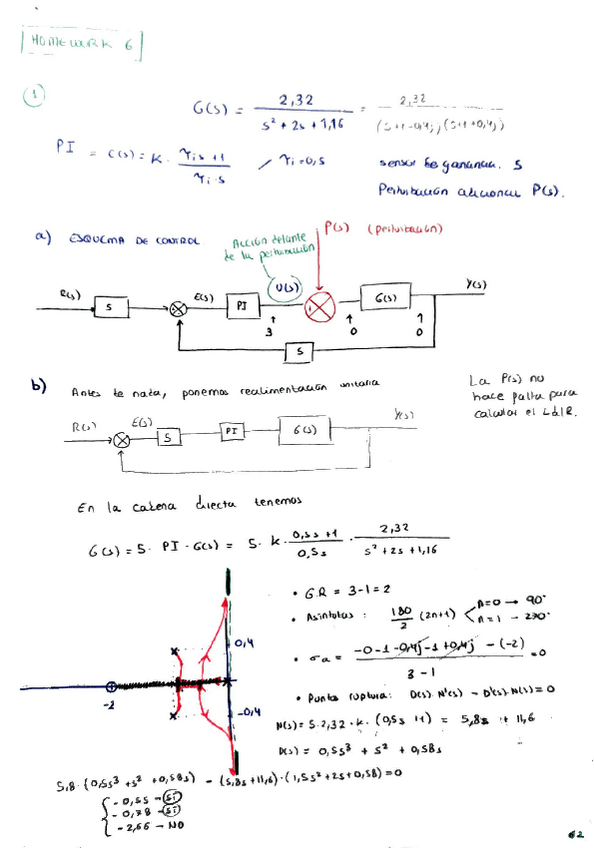 HOMEWORK 6
1
G(s) = 2,32 / s² + 2s + 1,16 = 2,32 / (s+1-0,4j)(s+1+0,4j)
PI = C(s) = K · τi s + 1 / τi · s / τi = 0,5
sensor de ganancia 5
Perturbación adicional P(s).
a) ESQUEMA DE CONTROL
Acción delante de la perturbación
P(s) (perturbación)
R(s) 5 E(s) PI U(s) G(s) Y(s)
3 0 0
5
b) Antes de nada, ponemos realimentación unitaria
La P(s) no
hace falta para
calcular el LdlR.
R(s) E(s) 5 PI G(s) Y(s)
En la cadena directa tenemos
G(s) = 5 · PI · G(s) = 5 · K · 0,5s + 1 / 0,5s · 2,32 / s² + 2s + 1,16
• GR = 3-1 = 2
• Asíntotas: 180 / 2 (2n+1) n=0 → 90°
n=1 → 270°
• σa = -0-1-0,4j-1+0,4j - (-2) / 3-1 = 0
0,4
-2
-0,4
• Puntos ruptura: D(s)·N'(s) - D'(s)·N(s) = 0
N(s) = 5·2,32·K·(0,5s+1) = 5,8s + 11,6
D(s) = 0,5s³ + s² + 0,58s
5,8·(0,5s³ + s² + 0,58s) - (5,8s+11,6)·(1,5s²+2s+0,58) = 0
-0,55 → Si
-0,78 → Si
-2,66 → NO
62